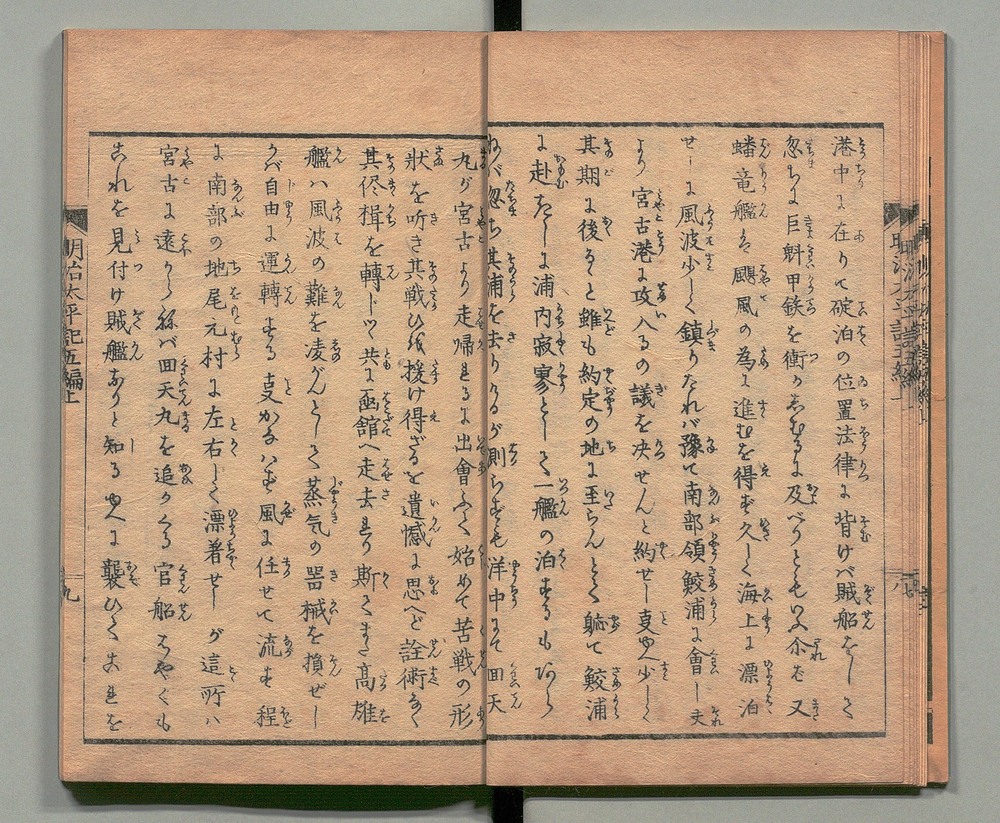 港中に在りて碇泊の位置法律に背けバ賊船をして
忽ちに巨魁甲鉄を衝かしむるに及べりとも又
蟠竜艦ハ颶風の為に進むを得ず久しく海上に漂泊
せしに風波少しく鎮りたれバ豫て南部領鮫浦に會し夫
より宮古港に攻入るの議を决せんと約せし支ゆへ少しく
其期に後ると雖も約定の地に至らんとて躰て鮫浦
に赴きしに浦内寂寥として一艦の泊するもあら
ねバ忽ち其浦を去りけるが則ち洋中にて回天
丸が宮古より走帰るに出會ふて始めて苦戦の形
状を听き其戦ひを援け得ざるを遺憾に思へど詮術なく
其侭楫を轉じツヽ共に函舘へ走去り斯てまた高雄
艦ハ風波の難を凌がんとして蒸気の噐械を損ぜし
かバ自由に運轉する支かなハず風に任せて流す程
に南部の地尾元村に左右して漂着せしが這所ハ
宮古に遠からねバ回天丸を追かくる官船はやくも
これを見付け賊艦ありと知るゆへに襲ひてこれを
明治太平記五編上
九
八